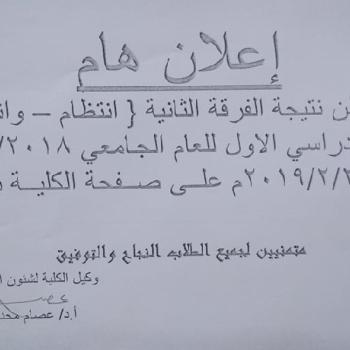 إعلان هام
نتيجة الفرقة الثانية { انتظام –
الاول للعام الجامعي ٢٠١٨/
٢٠١٩/٢/م على صفحة الكلية
متمنيين لجميع الطلاب النجاح والتوفيق
وكيل الكلية لشئون
أ.د/ عصام